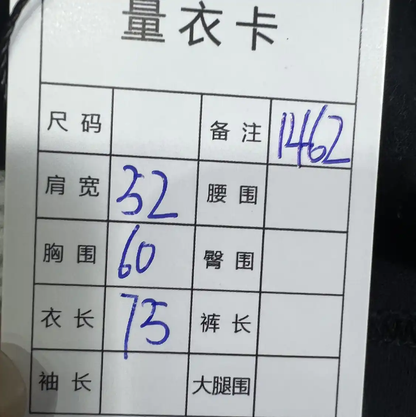 量衣卡
尺码 备注 1462
肩宽 52 腰围
胸围 60 臀围
衣长 75 裤长
袖长 大腿围